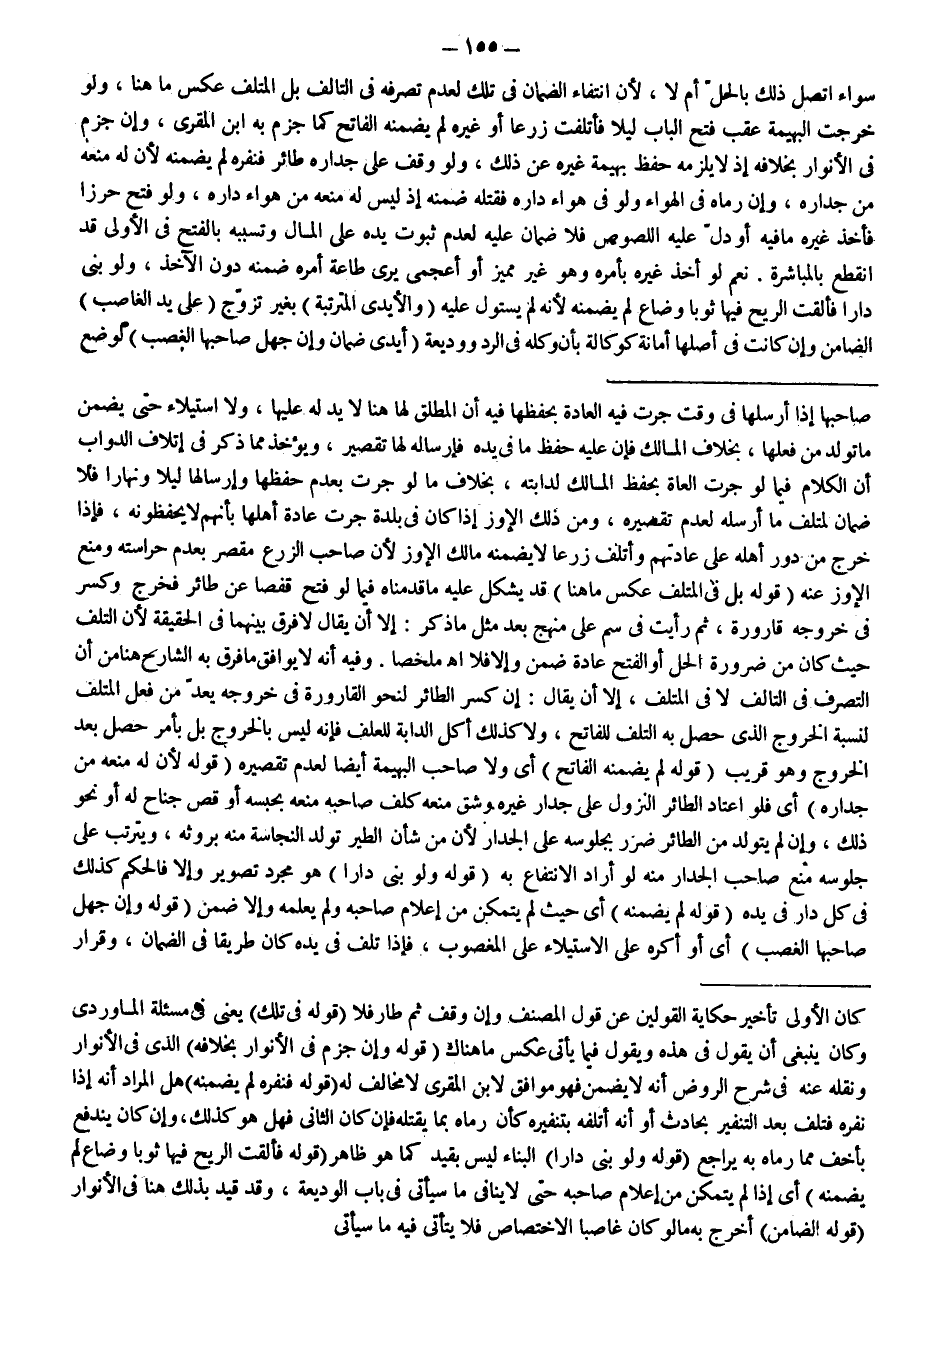 – ١٥٥ –
سواء اتصل ذلك بالحلّ أم لا ، لأن انتفاء الضمان فى تلك لعدم تصرفه فى التالف بل المتلف عكس ما هنا ، ولو
خرجت البهيمة عقب فتح الباب ليلا فأتلفت زرعا أو غيره لم يضمنه الفاتح كما جزم به ابن المقرى ، وإن جزم
فى الأنوار بخلافه إذ لا يلزمه حفظ بهيمة غيره عن ذلك ، ولو وقف على جداره طائر فنفره لم يضمنه لأن له منعه
من جداره ، وإن رماه فى الهواء ولو فى هواء داره فقتله ضمنه إذ ليس له منعه من هواء داره ، ولو فتح حرزا
فأخذ غيره مافيه أو دلّ عليه اللصوص فلا ضمان عليه لعدم ثبوت يده على المال وتسببه بالفتح فى الأولى قد
انقطع بالمباشرة . نعم لو أخذ غيره بأمره وهو غير مميز أو أعجمى يرى طاعة أمره ضمنه دون الآخذ ، ولو بنى
دارا فألقت الريح فيها ثوبا وضاع لم يضمنه لأنه لم يستول عليه ( والأيدى المترتبة ) بغير تزوّج ( على يد الغاصب )
الضامن وإن كانت فى أصلها أمانة كوكالة بأن وكله فى الرد ووديعة ( أيدى ضمان وإن جهل صاحبها الغصب ) لوضع
صاحبها إذا أرسلها فى وقت جرت فيه العادة بحفظها فيه أن المطلق لها هنا لا يد له عليها ، ولا استيلاء حتى يضمن
ماتولد من فعلها ، بخلاف المالك فإن عليه حفظ ما فى يده فإرساله لها تقصير ، ويؤخذ مما ذكر فى إتلاف الدواب
أن الكلام فيما لو جرت العاة بحفظ المالك لدابته ، بخلاف ما لو جرت بعدم حفظها وإرسالها ليلا ونهارا فلا
ضمان لمتلف ما أرسله لعدم تقصيره ، ومن ذلك الإوز إذا كان فى بلدة جرت عادة أهلها بأنهم لا يحفظونه ، فإذا
خرج من دور أهله على عادتهم وأتلف زرعا لا يضمنه مالك الإوز لأن صاحب الزرع مقصر بعدم حراسته ومنع
الإوز عنه ( قوله بل فى المتلف عكس ماهنا ) قد يشكل عليه ماقدمناه فيما لو فتح قفصا عن طائر فخرج وكسر
فى خروجه قارورة ، ثم رأيت فى سم على منهج بعد مثل ماذكر : إلا أن يقال لافرق بينهما فى الحقيقة لأن التلف
حيث كان من ضرورة الحل أو الفتح عادة ضمن وإلا فلا اه ملخصا . وفيه أنه لا يوافق مافرق به الشارح هنا من أن
التصرف فى التالف لا فى المتلف ، إلا أن يقال : إن كسر الطائر لنحو القارورة فى خروجه يعدّ من فعل المتلف
لنسبة الخروج الذى حصل به التلف للفاتح ، ولا كذلك أكل الدابة للعلف فإنه ليس بالخروج بل بأمر حصل بعد
الخروج وهو قريب ( قوله لم يضمنه الفاتح ) أى ولا صاحب البهيمة أيضا لعدم تقصيره ( قوله لأن له منعه من
جداره ) أى فلو اعتاد الطائر النزول على جدار غيره وشق منعه كلف صاحبه منعه بحبسه أو قص جناح له أو نحو
ذلك ، وإن لم يتولد من الطائر ضرر بجلوسه على الجدار لأن من شأن الطير تولد النجاسة منه بروثه ، ويترتب على
جلوسه منع صاحب الجدار منه لو أراد الانتفاع به ( قوله ولو بنى دارا ) هو مجرد تصوير وإلا فالحكم كذلك
فى كل دار فى يده ( قوله لم يضمنه ) أى حيث لم يتمكن من إعلام صاحبه ولم يعلمه وإلا ضمن ( قوله وإن جهل
صاحبها الغصب ) أى أو أكره على الاستيلاء على المغصوب ، فإذا تلف فى يده كان طريقا فى الضمان ، وقرار
كان الأولى تأخير حكاية القولين عن قول المصنف وإن وقف ثم طار فلا (قوله فى تلك) يعنى فى مسئلة الماوردى
وكان ينبغى أن يقول فى هذه ويقول فيما يأتى عكس ماهناك ( قوله وإن جزم فى الأنوار بخلافه) الذى فى الأنوار
ونقله عنه فى شرح الروض أنه لا يضمن فهو موافق لابن المقرى لا مخالف له (قوله فنفره لم يضمنه) هل المراد أنه إذا
نفره فتلف بعد التنفير بحادث أو أنه أتلفه بتنفيره كأن رماه بما يقتله فإن كان الثانى فهل هو كذلك، وإن كان يندفع
بأخف مما رماه به يراجع (قوله ولو بنى دارا) البناء ليس بقيد كما هو ظاهر (قوله فألقت الريح فيها ثوبا وضاع لم
يضمنه ) أى إذا لم يتمكن من إعلام صاحبه حتى لا ينافى ما سيأتى فى باب الوديعة ، وقد قيد بذلك هنا فى الأنوار
(قوله الضامن) أخرج به مالو كان غاصبا الاختصاص فلا يتأتى فيه ما سيأتى